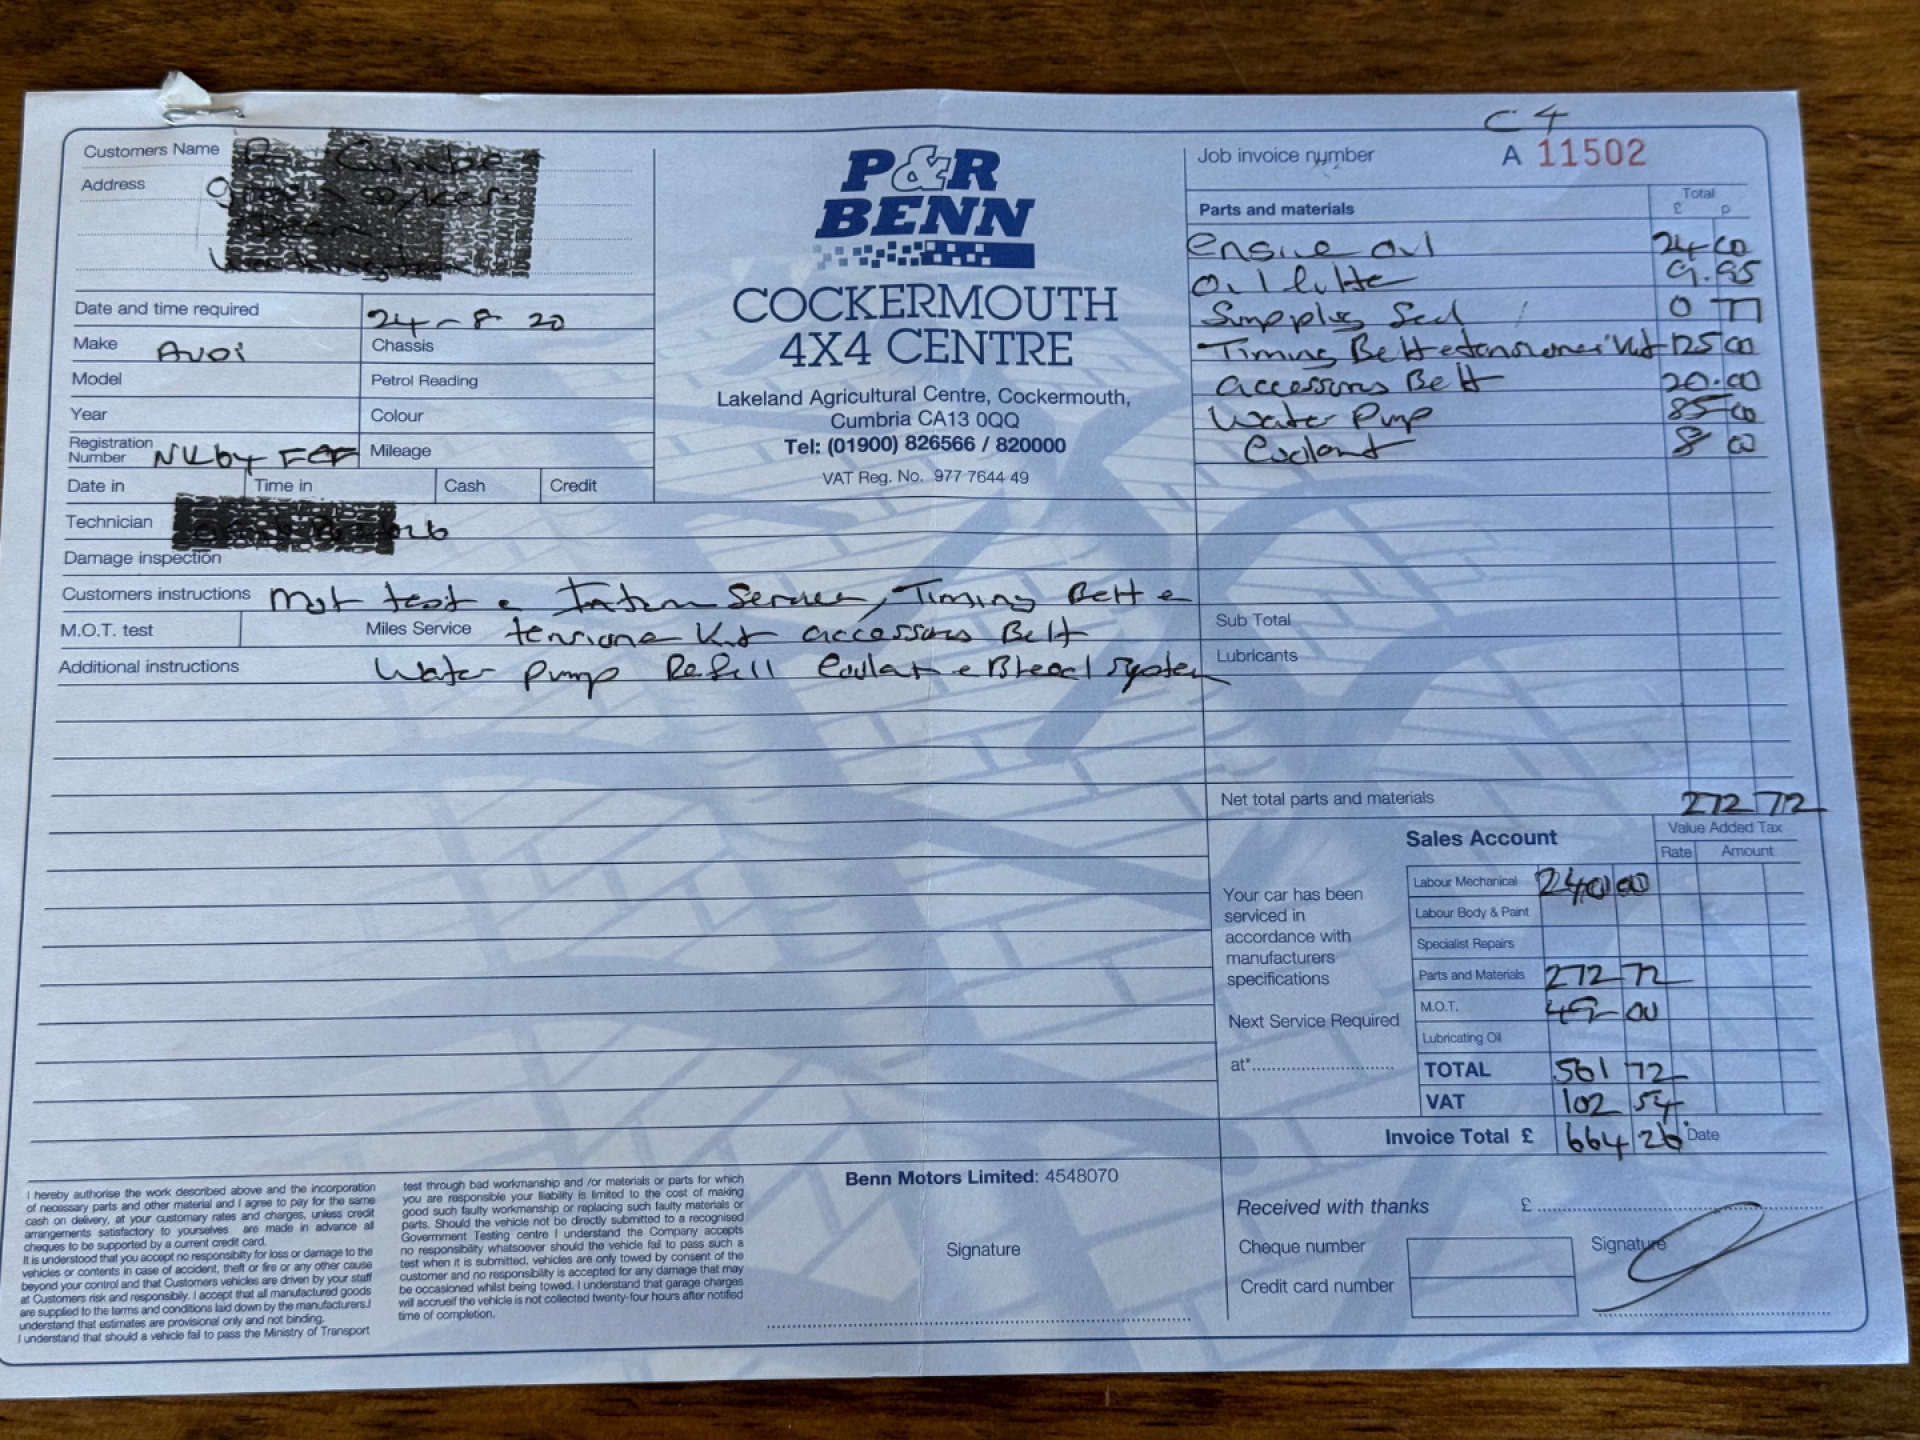 C4
Customers Name
Address
Date and time required 24-8-20
Make Audi
Chassis
Model
Petrol Reading
Year
Colour
Registration Number
Mileage
Date in
Time in
Cash
Credit
Technician
Damage inspection
Customers instructions Mot test & Service, Timing Belt &
M.O.T. test
Miles Service Kit Belt
Additional instructions Water Pump Refill & Bleed System
P&R
BENN
COCKERMOUTH
4X4 CENTRE
Lakeland Agricultural Centre, Cockermouth,
Cumbria CA13 0QQ
Tel: (01900) 826566 / 820000
VAT Reg. No. 977 7644 49
Job invoice number A 11502
Parts and materials
Total
£ p
engine oil 24 00
oil 9.95
Sump plug Seal 0 77
Timing Belt & Kit 125 00
Belt 20.00
Water Pump 85 00
Coolant 8 00
Sub Total
Lubricants
Net total parts and materials 272 72
Sales Account
Value Added Tax
Rate Amount
Your car has been
serviced in
accordance with
manufacturers
specifications
Next Service Required
at*
Labour Mechanical 240 00
Labour Body & Paint
Specialist Repairs
Parts and Materials 272 72
M.O.T. 49 00
Lubricating Oil
TOTAL 561 72
VAT 102 54
Invoice Total £ 664 26
Date
I hereby authorise the work described above and the incorporation
of necessary parts and other material and I agree to pay for the same
cash on delivery, at your customary rates and charges, unless credit
arrangements satisfactory to yourselves are made in advance all
cheques to be supported by a current credit card.
It is understood that you accept no responsibilty for loss or damage to the
vehicles or contents in case of accident, theft or fire or any other cause
beyond your control and that Customers vehicles are driven by your staff
at Customers risk and responsibily. I accept that all manufactured goods
are supplied to the terms and conditions laid down by the manufacturers.I
understand that estimates are provisional only and not binding.
I understand that should a vehicle fail to pass the Ministry of Transport
test through bad workmanship and /or materials or parts for which
you are responsible your liability is limited to the cost of making
good such faulty workmanship or replacing such faulty materials or
parts. Should the vehicle not be directly submitted to a recognised
Government Testing centre I understand the Company accepts
no responsibility whatsoever should the vehicle fail to pass such a
test when it is submitted, vehicles are only towed by consent of the
customer and no responsibility is accepted for any damage that may
be occasioned whilst being towed. I understand that garage charges
will accrueif the vehicle is not collected twenty-four hours after notified
time of completion.
Benn Motors Limited: 4548070
Signature
Received with thanks £
Cheque number
Credit card number
Signature